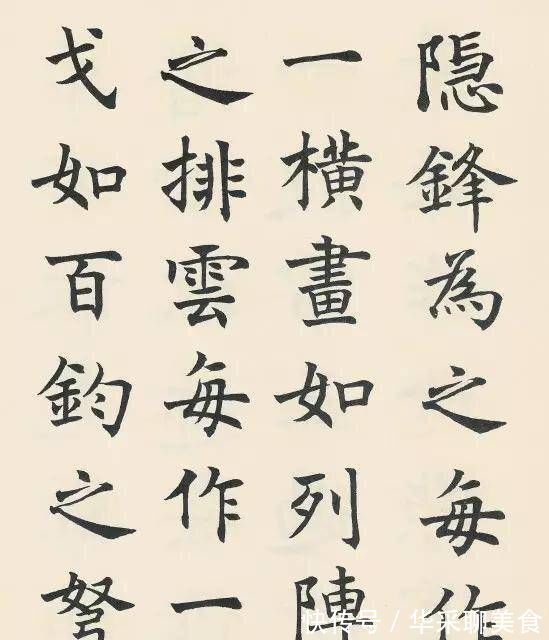 隱鋒為之每作
一橫畫如列陣
之排雲每作一
戈如百鈞之弩
快传号 / 华采聊美食